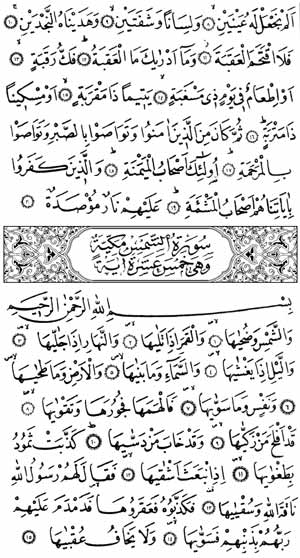 اَلَمْ نَجْعَلْ لَهُ عَيْنَيْنِ ﴿٨﴾ وَلِسَانًا وَشَفَتَيْنِ ﴿٩﴾ وَهَدَيْنَاهُ النَّجْدَيْنِ ﴿١٠﴾
فَلَا اقْتَحَمَ الْعَقَبَةَ ﴿١١﴾ وَمَا اَدْرٰيكَ مَا الْعَقَبَةُ ﴿١٢﴾ فَكُّ رَقَبَةٍ ﴿١٣﴾
اَوْ اِطْعَامٌ فِي يَوْمٍ ذِي مَسْغَبَةٍ ﴿١٤﴾ يَتِيمًا ذَا مَقْرَبَةٍ ﴿١٥﴾ اَوْ مِسْكِينًا
ذَا مَتْرَبَةٍ ﴿١٦﴾ ثُمَّ كَانَ مِنَ الَّذِينَ اٰمَنُوا وَتَوَاصَوْا بِالصَّبْرِ وَتَوَاصَوْا
بِالْمَرْحَمَةِ ﴿١٧﴾ اُولٰئِكَ اَصْحَابُ الْمَيْمَنَةِ ﴿١٨﴾ وَالَّذِينَ كَفَرُوا
بِاٰيَاتِنَا هُمْ اَصْحَابُ الْمَشْـَٔمَةِ ﴿١٩﴾ عَلَيْهِمْ نَارٌ مُؤْصَدَةٌ ﴿٢٠﴾
سُورَةُ الشَّمْسِ مَكِّيَّةٌ
وَهِيَ خَمْسَ عَشْرَةَ اٰيَةً
بِسْمِ اللّٰهِ الرَّحْمٰنِ الرَّحِيمِ
وَالشَّمْسِ وَضُحٰيهَا ﴿١﴾ وَالْقَمَرِ اِذَا تَلٰيهَا ﴿٢﴾ وَالنَّهَارِ اِذَا جَلّٰيهَا ﴿٣﴾
وَالَّيْلِ اِذَا يَغْشٰيهَا ﴿٤﴾ وَالسَّمَاءِ وَمَا بَنٰيهَا ﴿٥﴾ وَالْاَرْضِ وَمَا طَحٰيهَا
﴿٦﴾ وَنَفْسٍ وَمَا سَوّٰيهَا ﴿٧﴾ فَاَلْهَمَهَا فُجُورَهَا وَتَقْوٰيهَا ﴿٨﴾
قَدْ اَفْلَحَ مَنْ زَكّٰيهَا ﴿٩﴾ وَقَدْ خَابَ مَنْ دَسّٰيهَا ﴿١٠﴾ كَذَّبَتْ ثَمُودُ
بِطَغْوٰيهَا ﴿١١﴾ اِذِ انْبَعَثَ اَشْقٰيهَا ﴿١٢﴾ فَقَالَ لَهُمْ رَسُولُ اللّٰهِ
نَاقَةَ اللّٰهِ وَسُقْيٰيهَا ﴿١٣﴾ فَكَذَّبُوهُ فَعَقَرُوهَا فَدَمْدَمَ عَلَيْهِمْ
رَبُّهُمْ بِذَنْبِهِمْ فَسَوّٰيهَا ﴿١٤﴾ وَلَا يَخَافُ عُقْبٰيهَا ﴿١٥﴾